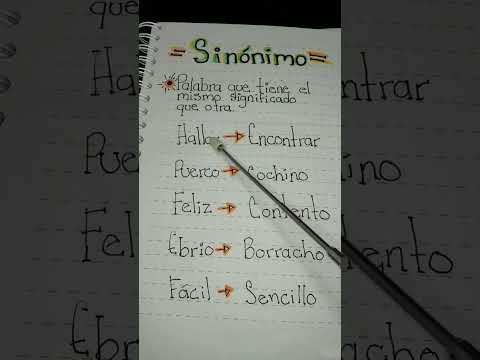 = Sinónimo =
Palabra que tiene el
mismo significado
que otra.
Hallar → Encontrar
Puerco → Cochino
Feliz → Contento
Ebrio → Borracho
Fácil → Sencillo